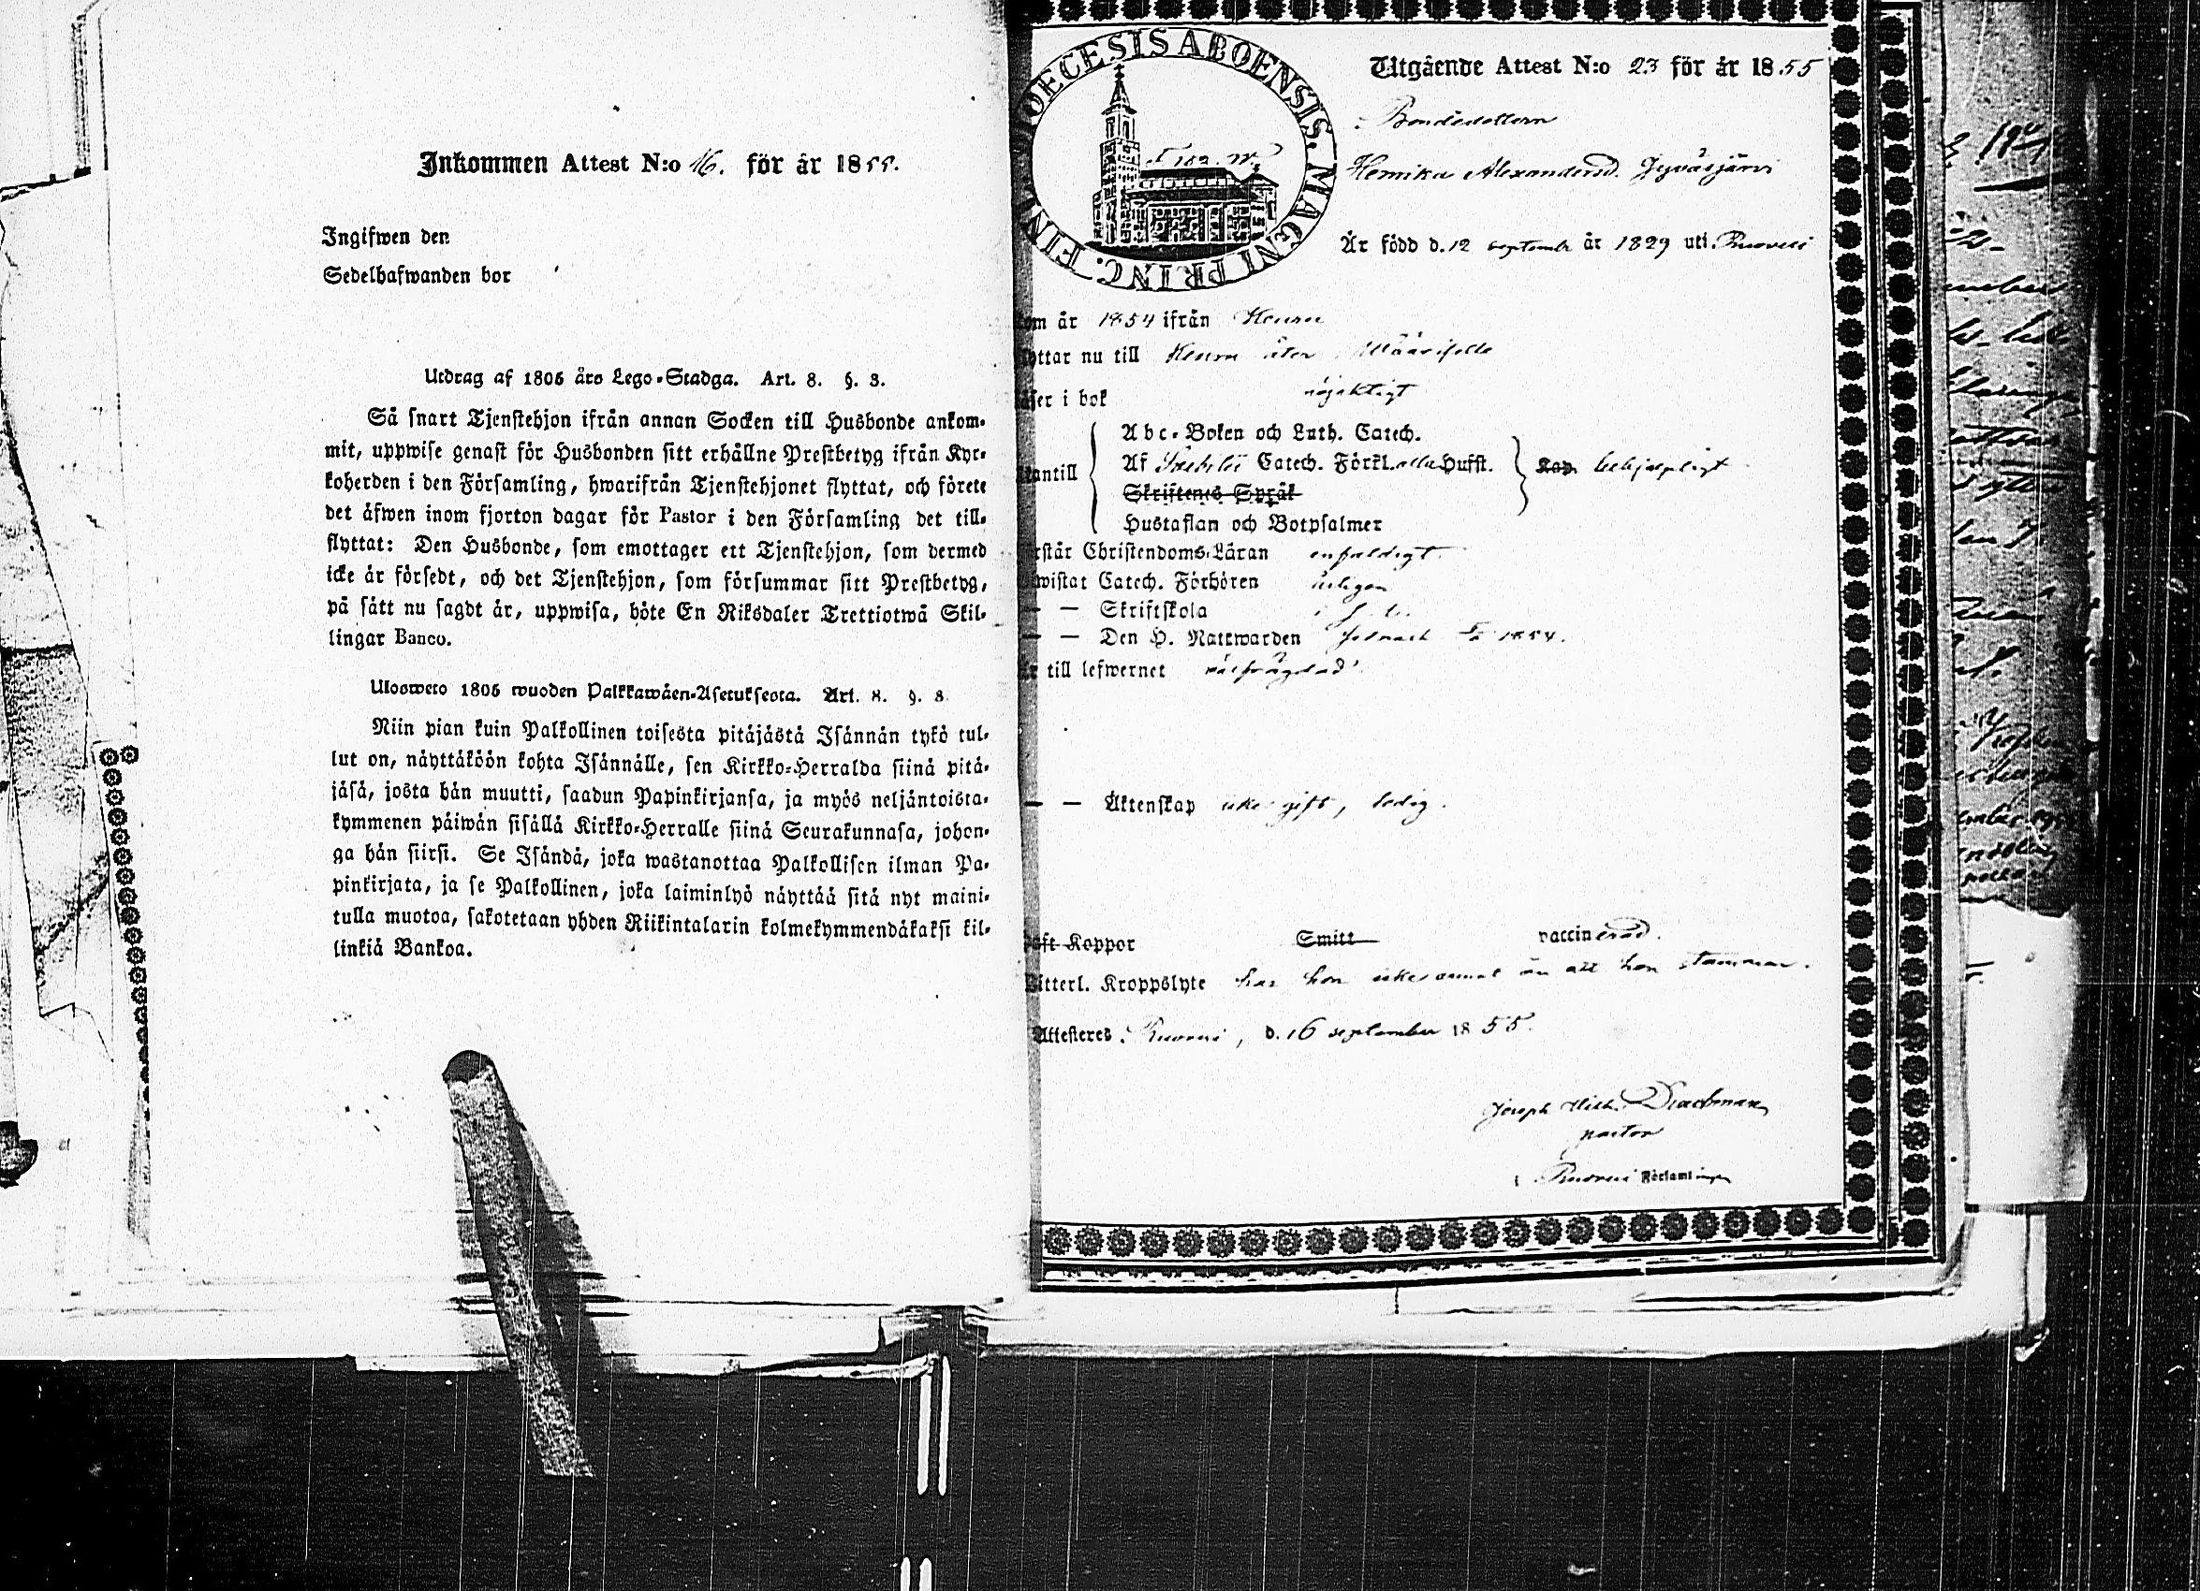 Inkommen Attest N:o 16. för år 1855.
Ingifwen den
Sedelhafwanden bor
Utdrag af 1805 års Lego-Stadga. Art. 8. §. 3.
Så snart Tjenstehjon ifrån annan Socken till Husbonde ankom-
mit, uppwise genast för Husbonden sitt erhållne Prestbetyg ifrån Kyr-
koherden i den Församling, hwarifrån Tjenstehjonet flyttat, och förete
det äfwen inom fjorton dagar för Pastor i den Församling det till-
flyttat: Den Husbonde, som emottager ett Tjenstehjon, som dermed
icke är försedt, och det Tjenstehjon, som försummar sitt Prestbetyg,
på sätt nu sagdt är, uppwisa, böte En Riksdaler Trettiotwå Skil-
lingar Banco.
Ulosweto 1805 wuoden Palkkawäen-Asetuksesta. Art. 8. §. 3
Niin pian kuin Palkollinen toisesta pitäjästä Isännän tykö tul-
lut on, näyttäköön kohta Isännälle, sen Kirkko-Herralda siinä pitä-
jäsä, josta hän muutti, saadun Papinkirjansa, ja myös neljäntoista-
kymmenen päiwän sisällä Kirkko-Herralle siinä Seurakunnasa, johon-
ga hän siirsi. Se Isändä, joka wastanottaa Palkollisen ilman Pa-
pinkirjata, ja se Palkollinen, joka laiminlyö näyttää sitä nyt maini-
tulla muotoa, sakotetaan yhden Riikintalarin kolmekymmendäkaksi kil-
linkiä Bankoa.
DIOECESIS ABOENSIS. MAGNI PRINC. FIN
Utgående Attest N:o 23 för år 1855
Bondedottern
Henrika Alexandersd. Jyväsjärvi
Är född d. 12 septembr år 1829 uti Ruovesi
om år 1854 ifrån Keuru
yttar nu till Keuru åter
äser i bok nöjaktigt
Abc-Boken och Luth. Catech.
Af Catech. Förkl. Hufst.
utantill behjelpligt
Skriftenes Språk
Hustaflan och Botpsalmer
rstår Christendoms-Läran enfaldigt
wistat Catech. Förhören årligen
— — Skriftskola
— — Den H. Nattwarden 1854.
r till lefwernet välfrägdad
— — Äktenskap icke gift, ledig.
aft Koppor Smitt vaccinerad.
itterl. Kroppslyte har hon icke annat än att hon stammar.
Attesteres. Ruovesi, d. 16 september 1855.
Joseph Wilh.
pastor
i Ruovesi Församlingen